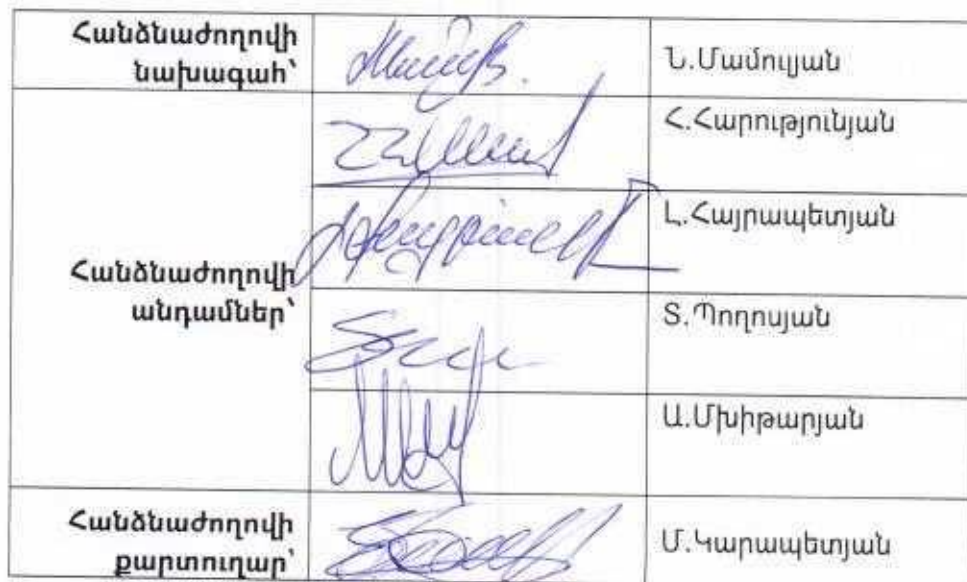 Հանձնաժողովի
նախագահ՝
Ն.Մամուլյան
Հանձնաժողովի
անդամներ՝
Հ.Հարությունյան
Լ.Հայրապետյան
Տ.Պողոսյան
Ա.Մխիթարյան
Հանձնաժողովի
քարտուղար՝
Մ.Կարապետյան